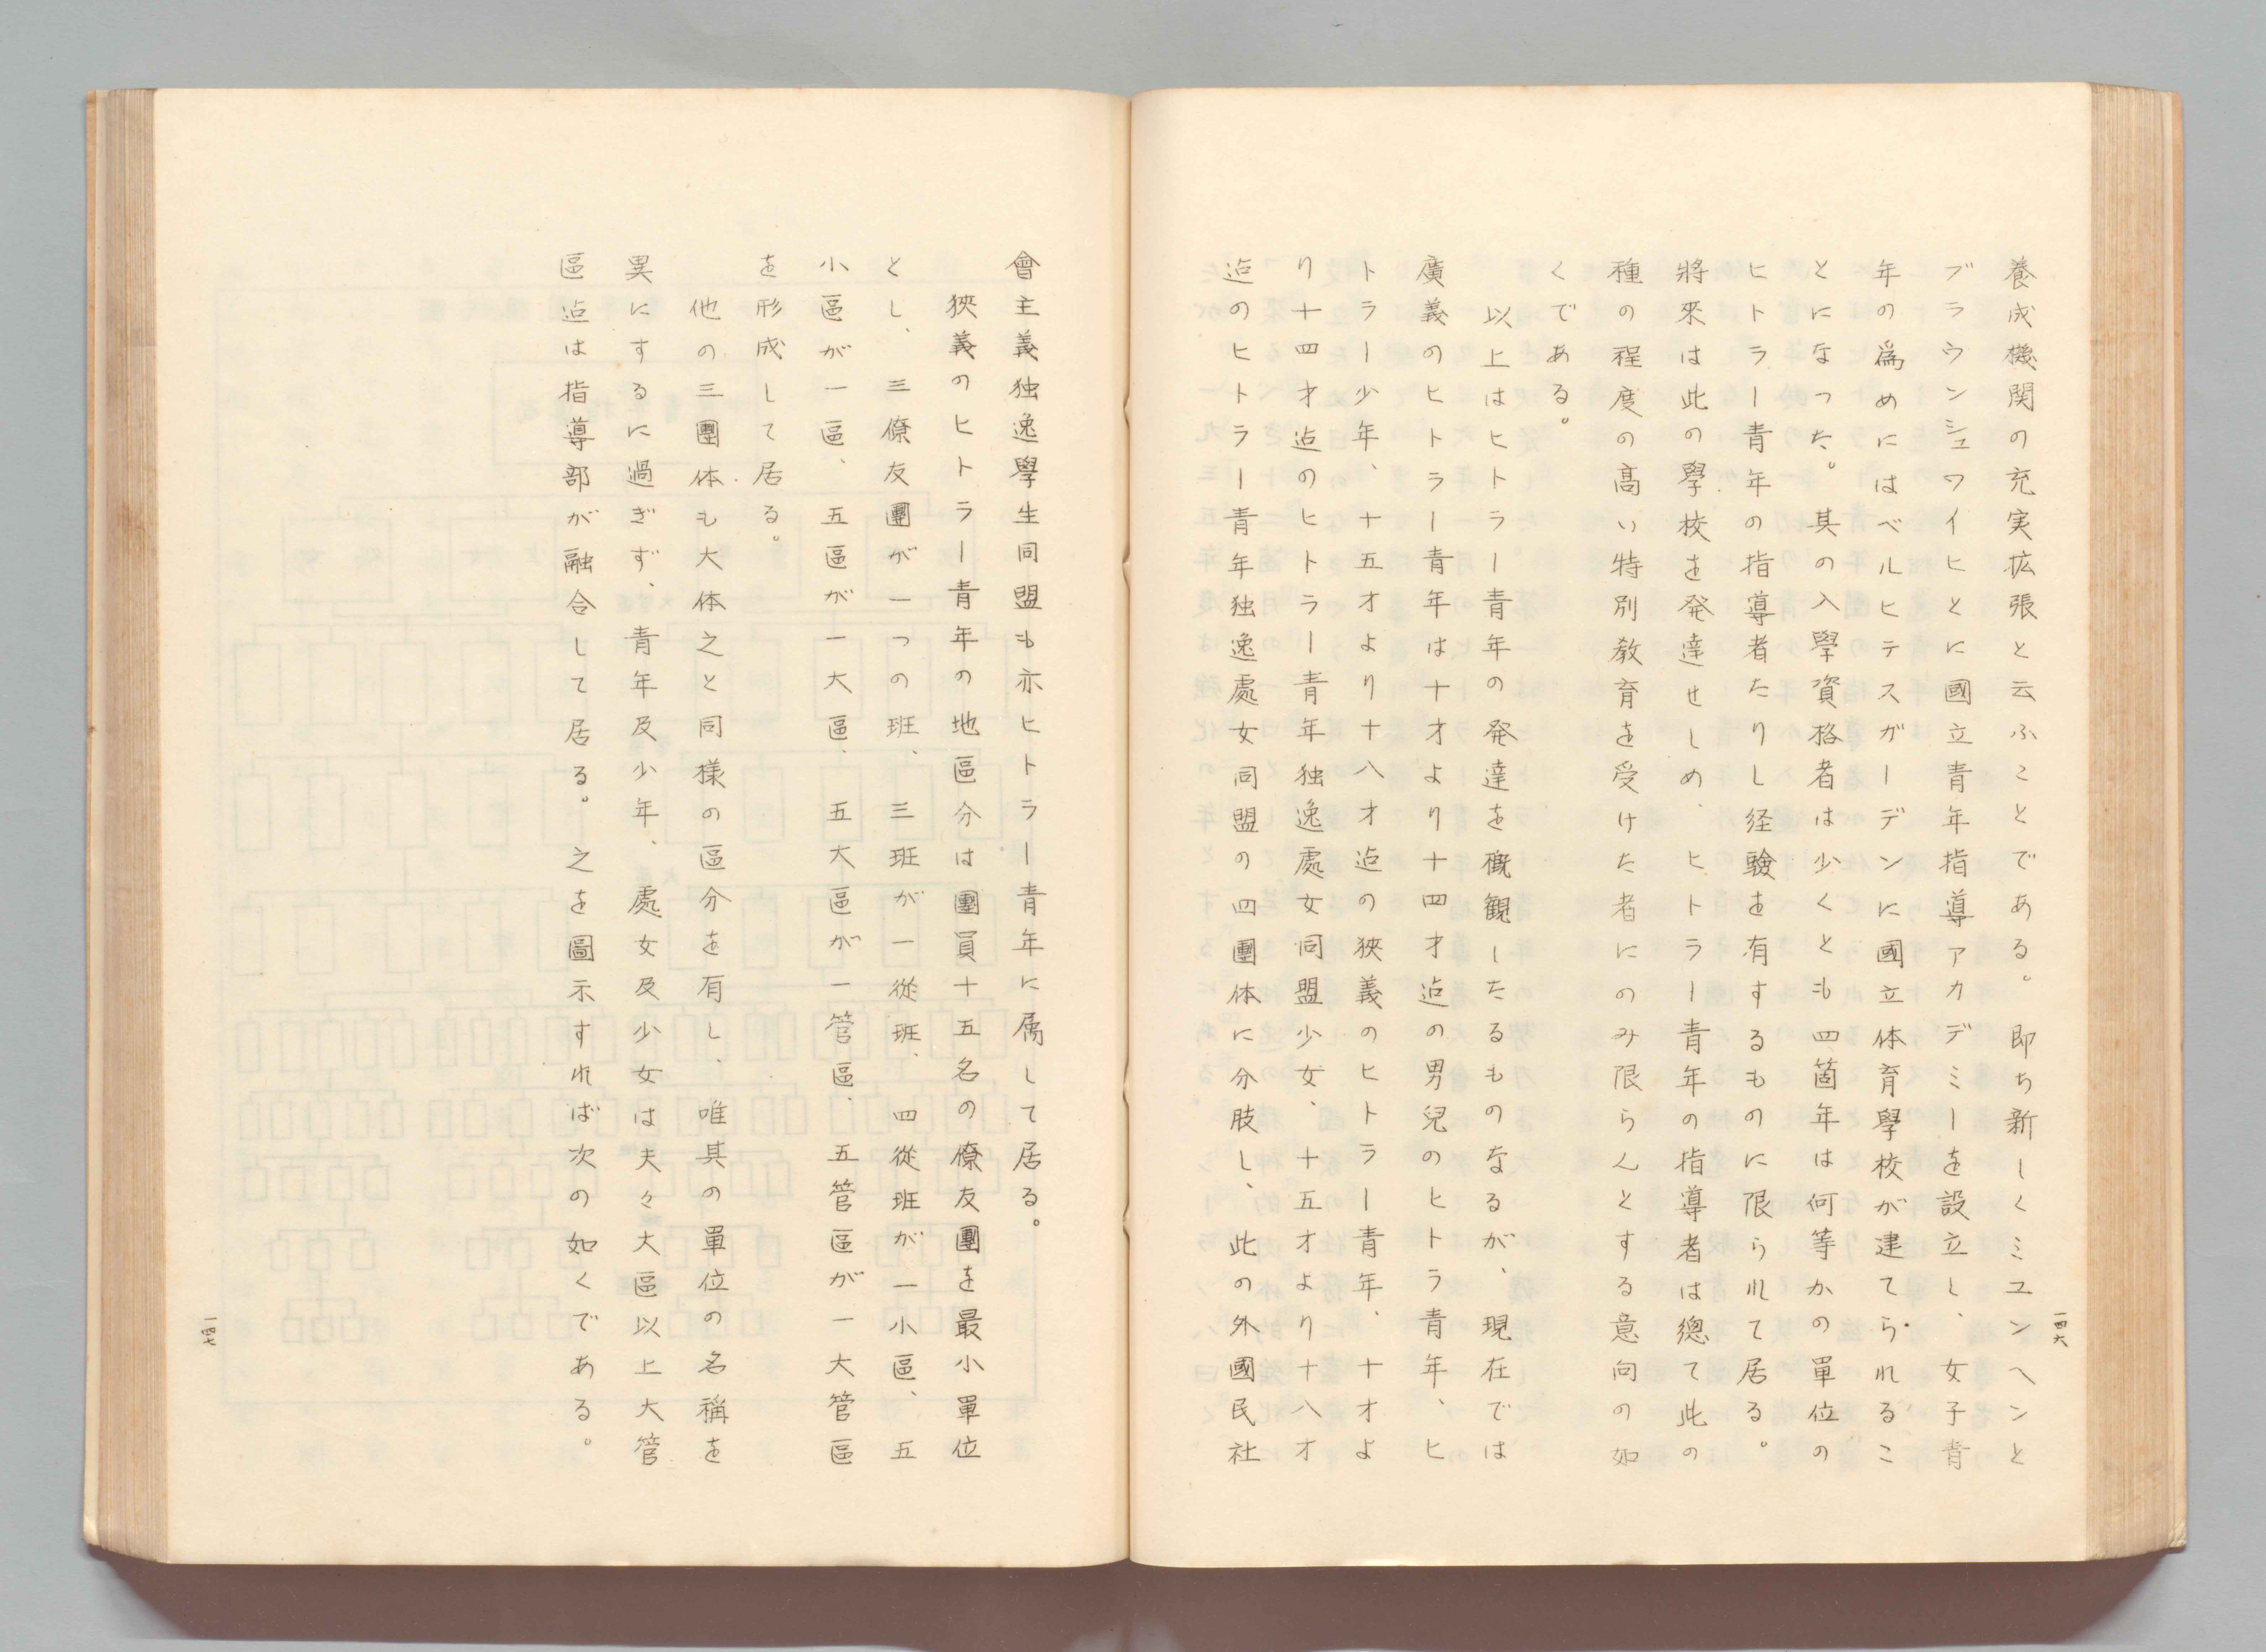 養成機関の充実拡張と云ふことである。即ち新しくミユンヘンと
ブラウンシュワイヒとに國立青年指導アカデミーを設立し、女子青
年の為めにはベルヒテスガーデンに國立体育學校が建てられるこ
とになった。其の入學資格者は少くとも四箇年は何等かの單位の
ヒトラー青年の指導者たりし経験を有するものに限られて居る。
將來は此の學校を発達せしめ、ヒトラー青年の指導者は總て此の
種の程度の高い特別教育を受けた者にのみ限らんとする意向の如
くである。
以上はヒトラー青年の発達を概観したるものなるが、現在では
廣義のヒトラー青年は十才より十四才迠の男兒のヒトラ青年、ヒ
トラー少年、十五才より十八才迠の狹義のヒトラー青年、十才よ
り十四才迠のヒトラー青年独逸處女同盟少女、十五才より十八才
迠のヒトラー青年独逸處女同盟の四團体に分肢し、此の外國民社
一四六
會主義独逸學生同盟も亦ヒトラー青年に属して居る。
狹義のヒトラー青年の地區分は團員十五名の僚友團を最小單位
とし、三僚友團が一つの班、三班が一從班、四從班が一小區、五
小區が一區、五區が一大區、五大區が一管區、五管區が一大管區
を形成して居る。
他の三團体も大体之と同様の區分を有し、唯其の單位の名稱を
異にするに過ぎず、青年及少年、處女及少女は夫々大區以上大管
區迠は指導部が融合して居る。之を圖示すれば次の如くである。
一四七